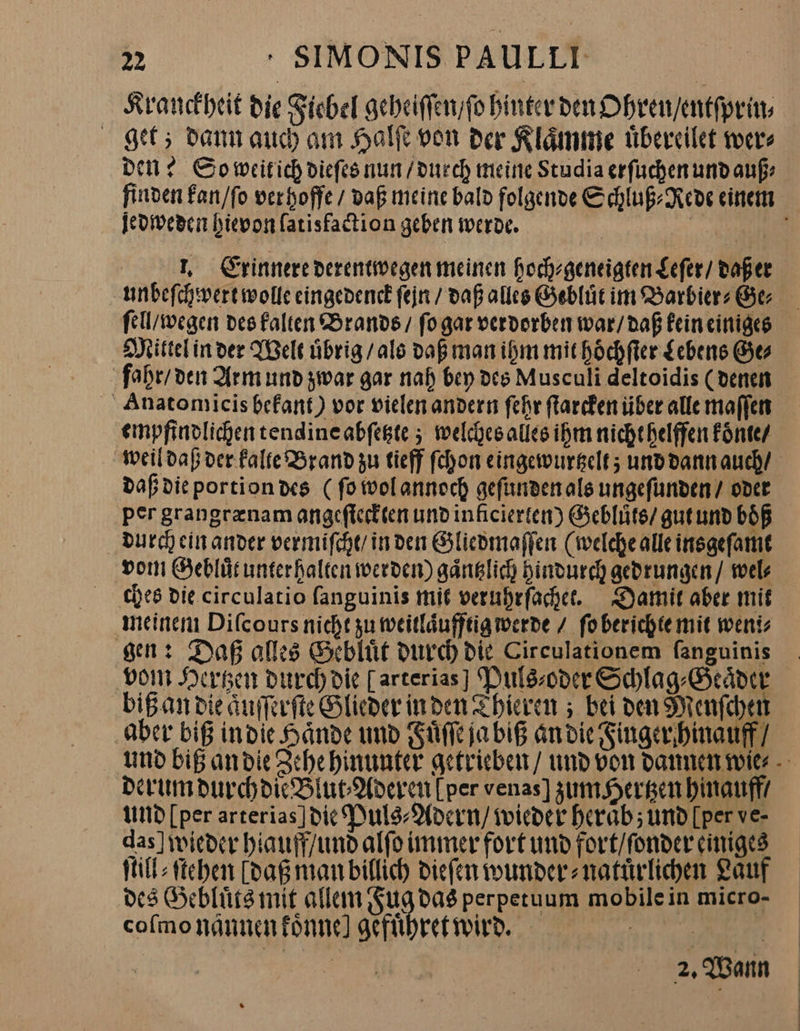 22 SIMONIS PAULLI
Kranckheit die Fiebel geheiſſen/ſo hinter den Ohren/entſprin⸗
get; dann auch am Halſe von der Klåmme ůbereilet wer⸗
den? So weit ich dieſes nun/durch meine Studia erſuchen und auß⸗
finden kan/ſo verhoffe/ daß meine bald folgende Schluß⸗Rede einem
jedweden hievon ſatisfaction geben werde.
1. Erinnere derentwegen meinen hoch⸗geneigten Leſer/ daß er
unbeſchwert wolle eingedenck ſejn/ daß alles Geblůt im Barbier⸗Ge⸗
ſell/wegen des kalten Brands/ ſo gar verdorben war/daß kein einiges
Mittel in der Welt ůbrig/als daß man ihm mit hôchſter Lebens Ge⸗
fahr/den Arm und zwar gar nah bey des Musculi deltoidis (denen
Anatomicis bekant) vor vielen andern ſehr ſtarcken über alle maſſen
empfindlichen tendine abſetzte; welches alles ihm nicht helffen kônte/
weil daß der kalte Brand zu tieff ſchon eingewurtzelt; und dann auch/
daß die portion des (ſo wol annoch geſunden als ungeſunden/ oder
per grangrænam angeſteckten und inficierten) Geblůts/ gut und bôß
durch ein ander vermiſcht/in den Gliedmaſſen (welche alle insgeſamt
vom Geblůt unterhalten werden) gåntzlich hindurch gedrungen/ wel⸗
ches die circulatio ſanguinis mit veruhrſachet. Damit aber mit
meinem Diſcours nicht zu weitlåufftig werde/ ſo berichte mit weni⸗
gen: Daß alles Geblůt durch die Circulationem ſanguinis
vom Hertzen durch die [arterias] Puls⸗oder Schlag⸗Geåder
biß an die åuſſerſte Glieder in den Thieren; bei den Menſchen
aber biß in die Hånde und Fůſſe ja biß an die Finger hinauff/
und biß an die Zehe hinunter getrieben/ und von dannen wie⸗
derum durch die Blut⸗Aderen [per venas] zum Hertzen hinauff/
und [per arterias] die Puls⸗Adern/ wieder herab; und [per ve-
das] wieder hiauff/und alſo immer fort und fort/ſonder einiges
ſtill⸗ſtehen [daß man billich dieſen wunder⸗natůrlichen Lauf
des Geblůts mit allem Fug das perpetuum mobile in micro-
coſmo nånnen kônne] gefůhret wird.
2. Wann